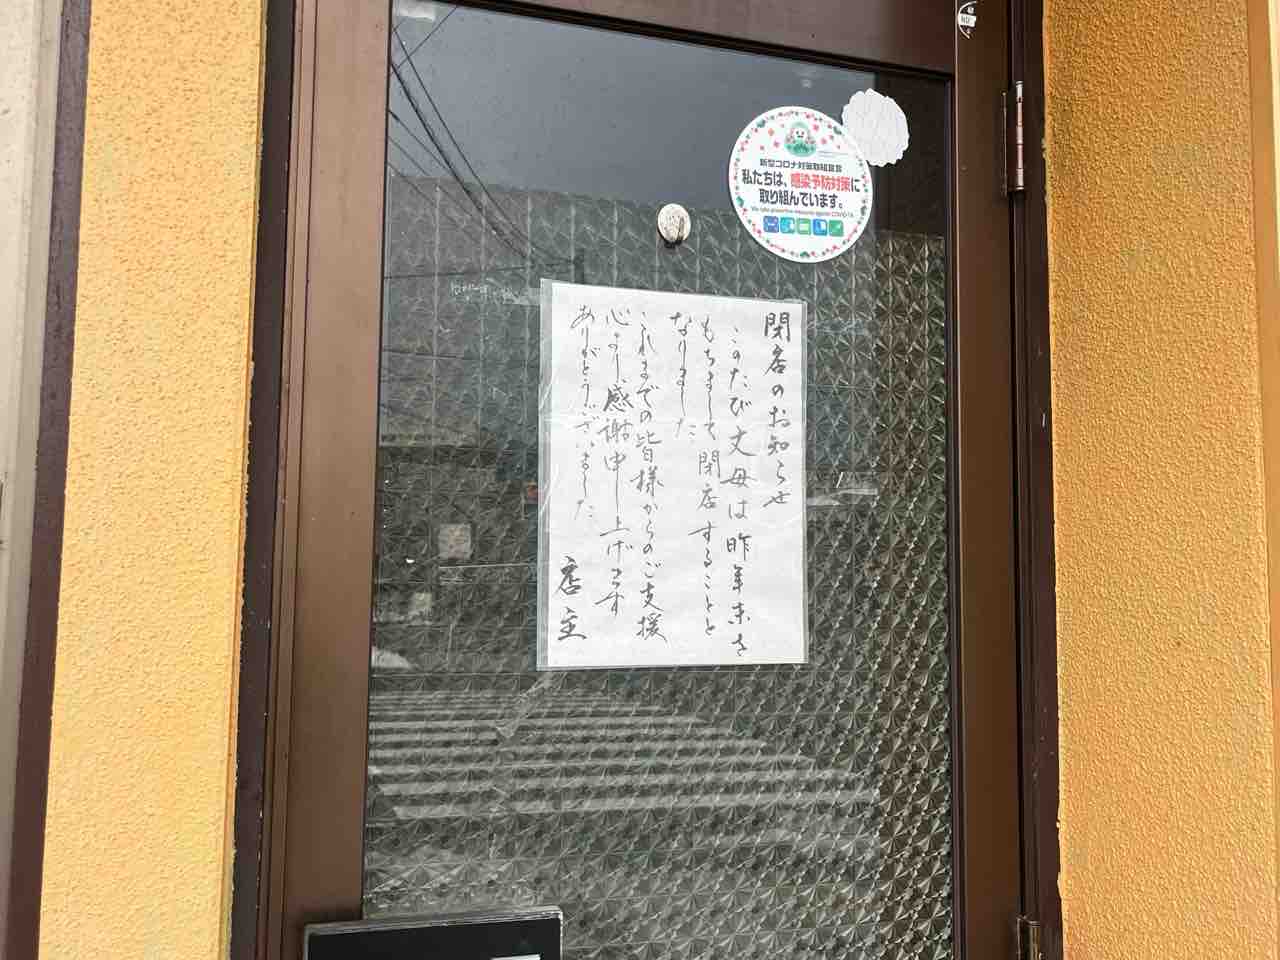 閉店のお知らせ
このたび丈母は昨年末を
もちまして閉店することと
なりました
これまでの皆様からのご支援
心より感謝申し上げます
ありがとうございました
店主
新型コロナ対策取組宣言
私たちは、感染予防対策に
取り組んでいます。
We take preventive measures against COVID-19.